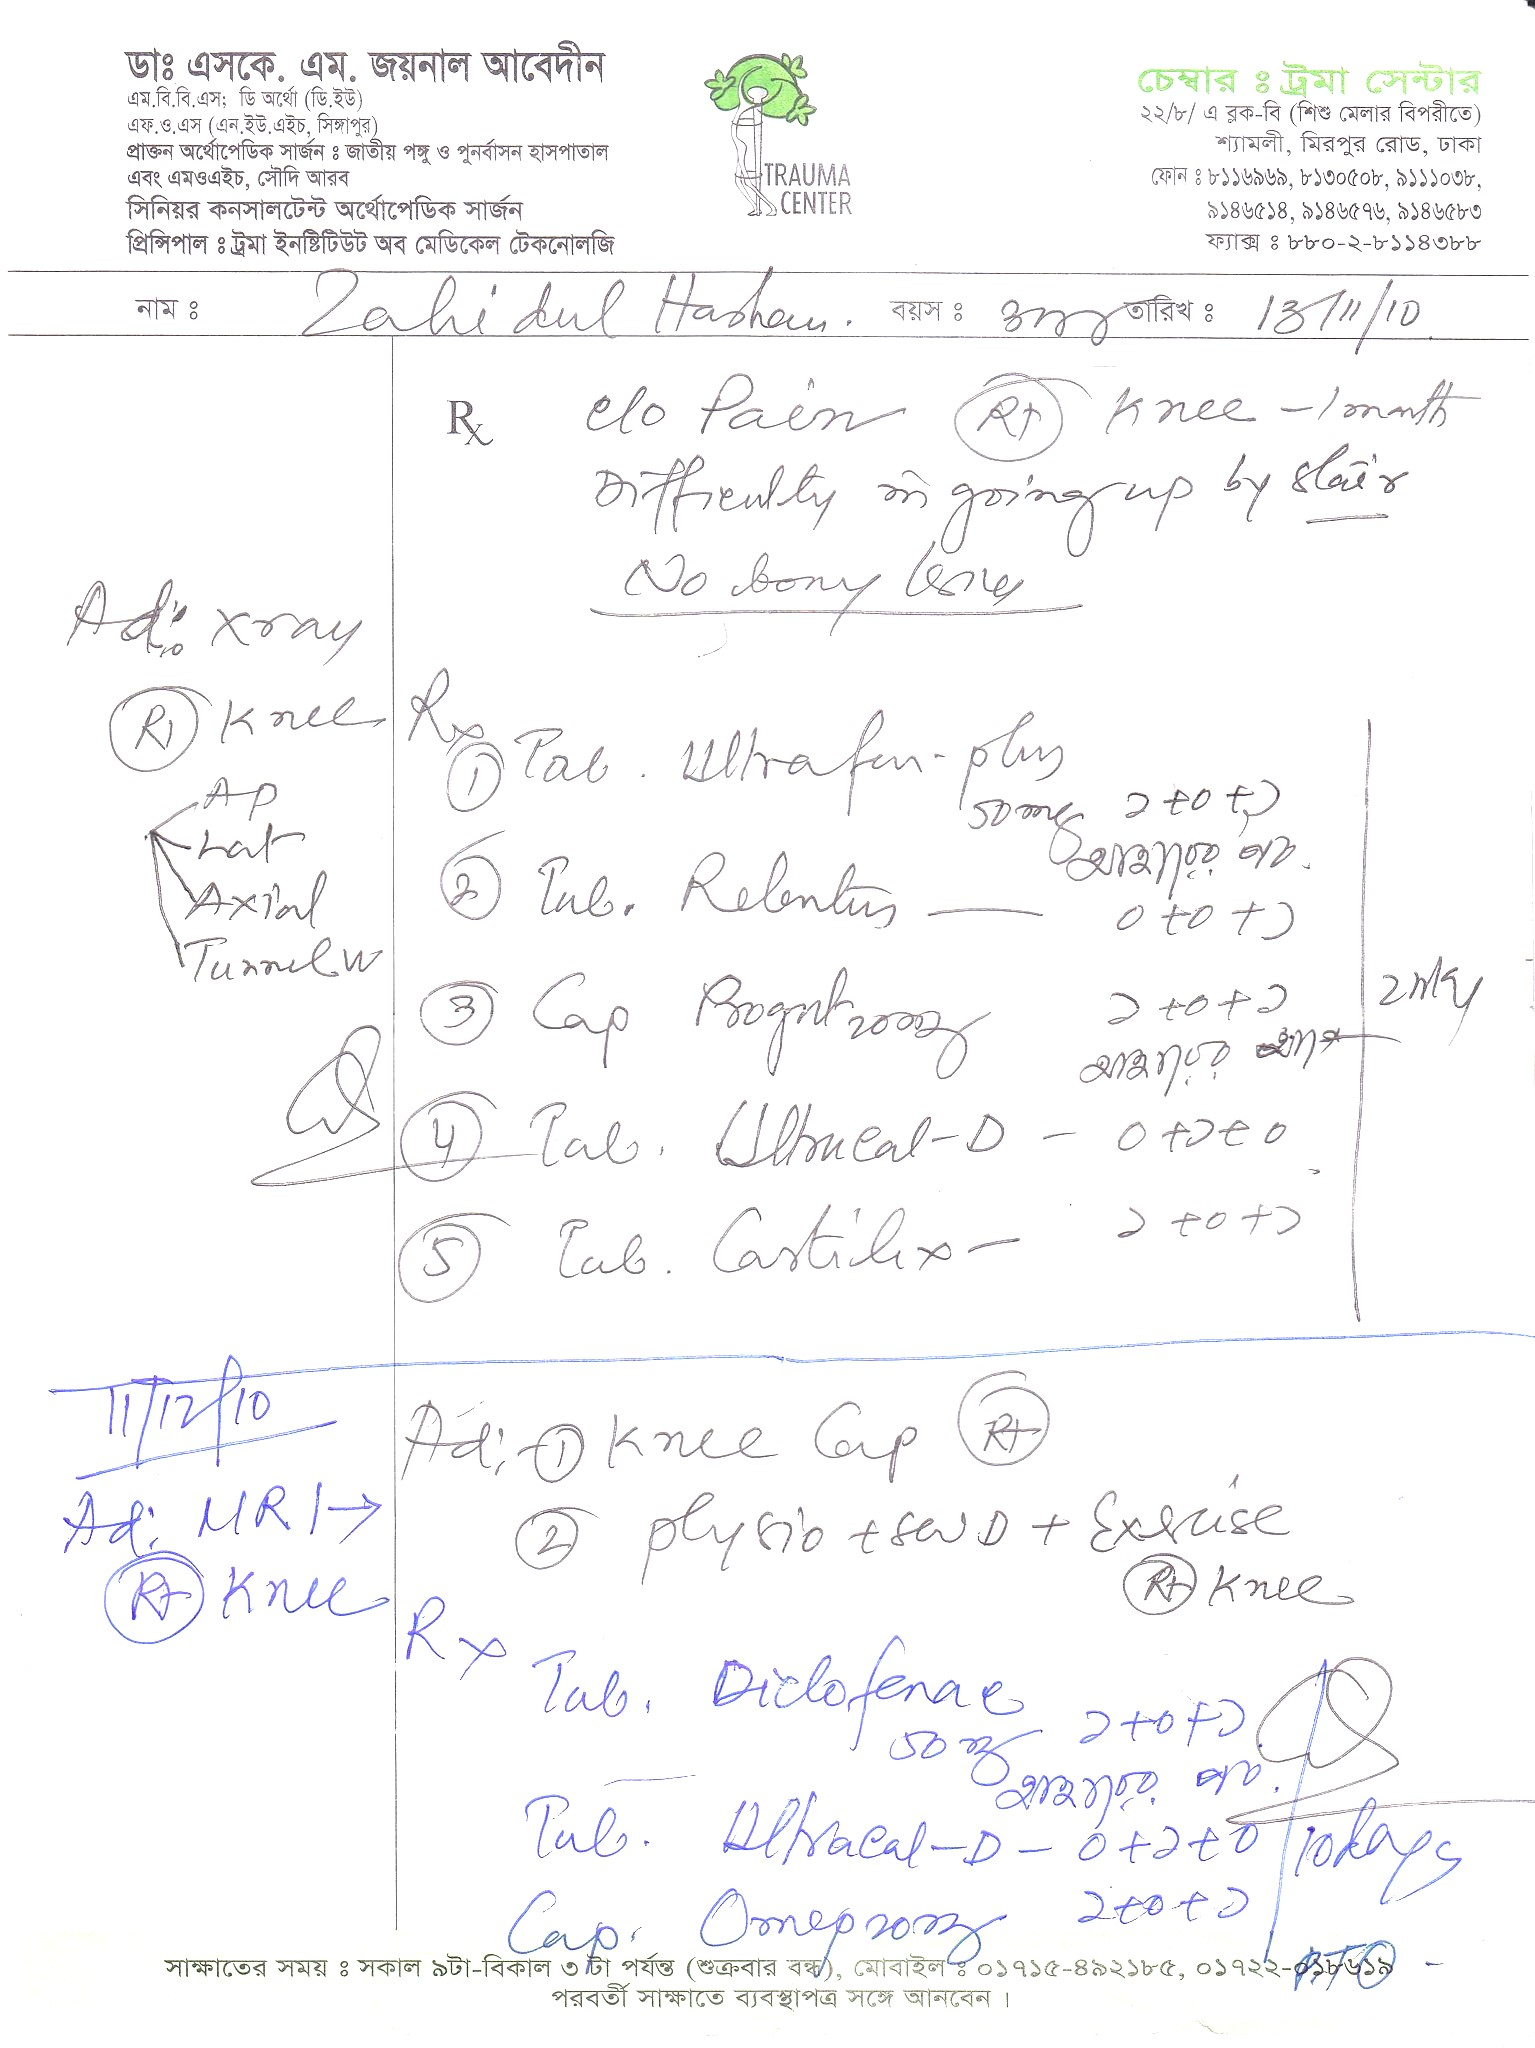 ডাঃ এসকে. এম. জয়নাল আবেদীন
এম.বি.বি.এস; ডি অর্থো (ডি.ইউ)
এফ.ও.এস (এন.ইউ.এইচ, সিঙ্গাপুর)
প্রাক্তন অর্থোপেডিক সার্জন : জাতীয় পঙ্গু ও পুনর্বাসন হাসপাতাল
এবং এমওএইচ, সৌদি আরব
সিনিয়র কনসালটেন্ট অর্থোপেডিক সার্জন
প্রিন্সিপাল : ট্রমা ইনষ্টিটিউট অব মেডিকেল টেকনোলজি
TRAUMA
CENTER
চেম্বার : ট্রমা সেন্টার
২২/৮/ এ ব্লক-বি (শিশু মেলার বিপরীতে)
শ্যামলী, মিরপুর রোড, ঢাকা
ফোন : ৮১১৬৯৬৯, ৮১৩০৫০৮, ৯১১১০৩৮,
৯১৪৬৫১৪, ৯১৪৬৫৭৬, ৯১৪৬৫৮৩
ফ্যাক্স : ৮৮০-২-৮১১৪৩৮৮
নাম : Zahidul Hashem. বয়স : তারিখ : 13/11/10
Rx c/o Pain Rt Knee - 1 month
Difficulty in going up by stair
No bony
Ad: xray
Rt Knee
AP
Lat
Axial
Tunnel W
Rx
1 Tab. Ultrafen-plus
50mg ১+০+১
2 Tab. Relentus — ০+০+১
3 Cap Progut 20mg ১+০+১
4 Tab. Ultracal-D - ০+১+০
5 Tab. Cartilix - ১+০+১
Ad: 1 Knee Cap Rt
2 Physio + SWD + Exercise
Rt Knee
11/12/10
Ad: MRI →
Rt Knee
Rx
Tab. Diclofenac
50mg ১+০+১
Tab. Ultracal-D - ০+১+০ 10 days
Cap. Omep 20mg ১+০+১
PTO -
সাক্ষাতের সময় : সকাল ৯টা-বিকাল ৩ টা পর্যন্ত (শুক্রবার বন্ধ), মোবাইল : ০১৭১৫-৪৯২১৮৫, ০১৭২২-০১৮৬১৯
পরবর্তী সাক্ষাতে ব্যবস্থাপত্র সঙ্গে আনবেন ।